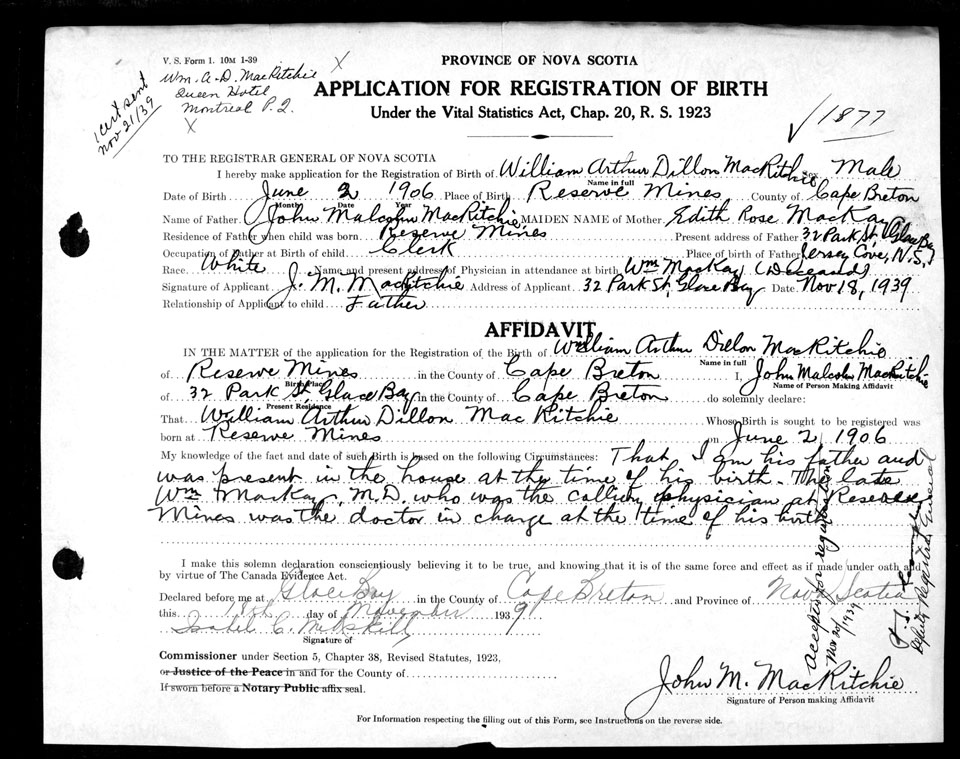 V. S. Form 1. 10M 1-39
Wm. A. D. MacRitchie X
Queen Hotel
Montreal P. Q.
X
1 cert sent
Nov 21/39
PROVINCE OF NOVA SCOTIA
APPLICATION FOR REGISTRATION OF BIRTH
Under the Vital Statistics Act, Chap. 20, R. S. 1923
√ 1877
TO THE REGISTRAR GENERAL OF NOVA SCOTIA
I hereby make application for the Registration of Birth of William Arthur Dillon MacRitchie Sex Male
Name in full
Date of Birth June 2 1906 Place of Birth Reserve Mines County of Cape Breton
Month Date Year
Name of Father John Malcolm MacRitchie MAIDEN NAME of Mother Edith Rose MacKay
Residence of Father when child was born Reserve Mines Present address of Father 32 Park St. Glace Bay
Occupation of Father at Birth of child Clerk Place of Birth of Father Jersey Cove, N.S.
Race White Name and present address of Physician in attendance at birth Wm MacKay (Deceased)
Signature of Applicant J. M. MacRitchie Address of Applicant 32 Park St, Glace Bay Date Nov 18, 1939
Relationship of Applicant to child Father
AFFIDAVIT
IN THE MATTER of the application for the Registration of the Birth of William Arthur Dillon MacRitchie
Name in full
of Reserve Mines in the County of Cape Breton I, John Malcolm MacRitchie
Birth Place Name of Person Making Affidavit
of 32 Park St Glace Bay in the County of Cape Breton do solemnly declare:
Present Residence
That William Arthur Dillon MacRitchie Whose Birth is sought to be registered was
born at Reserve Mines on June 2 1906
My knowledge of the fact and date of such Birth is based on the following Circumstances: That I am his father and
was present in the house at the time of his birth. The late
Wm MacKay, M.D. who was the colliery physician at Reserve
Mines was the doctor in charge at the time of his birth
I make this solemn declaration conscientiously believing it to be true, and knowing that it is of the same force and effect as if made under oath and
by virtue of The Canada Evidence Act.
Declared before me at Glace Bay in the County of Cape Breton and Province of Nova Scotia
this 18th day of November 1939
Isabel C.
Signature of
Commissioner under Section 5, Chapter 38, Revised Statutes, 1923,
or Justice of the Peace in and for the County of
If sworn before a Notary Public affix seal.
John M. MacRitchie
Signature of Person making Affidavit
For Information respecting the filling out of this Form, see Instructions on the reverse side.
Accepted for registration
Nov 20/1939
Deputy Registrar General